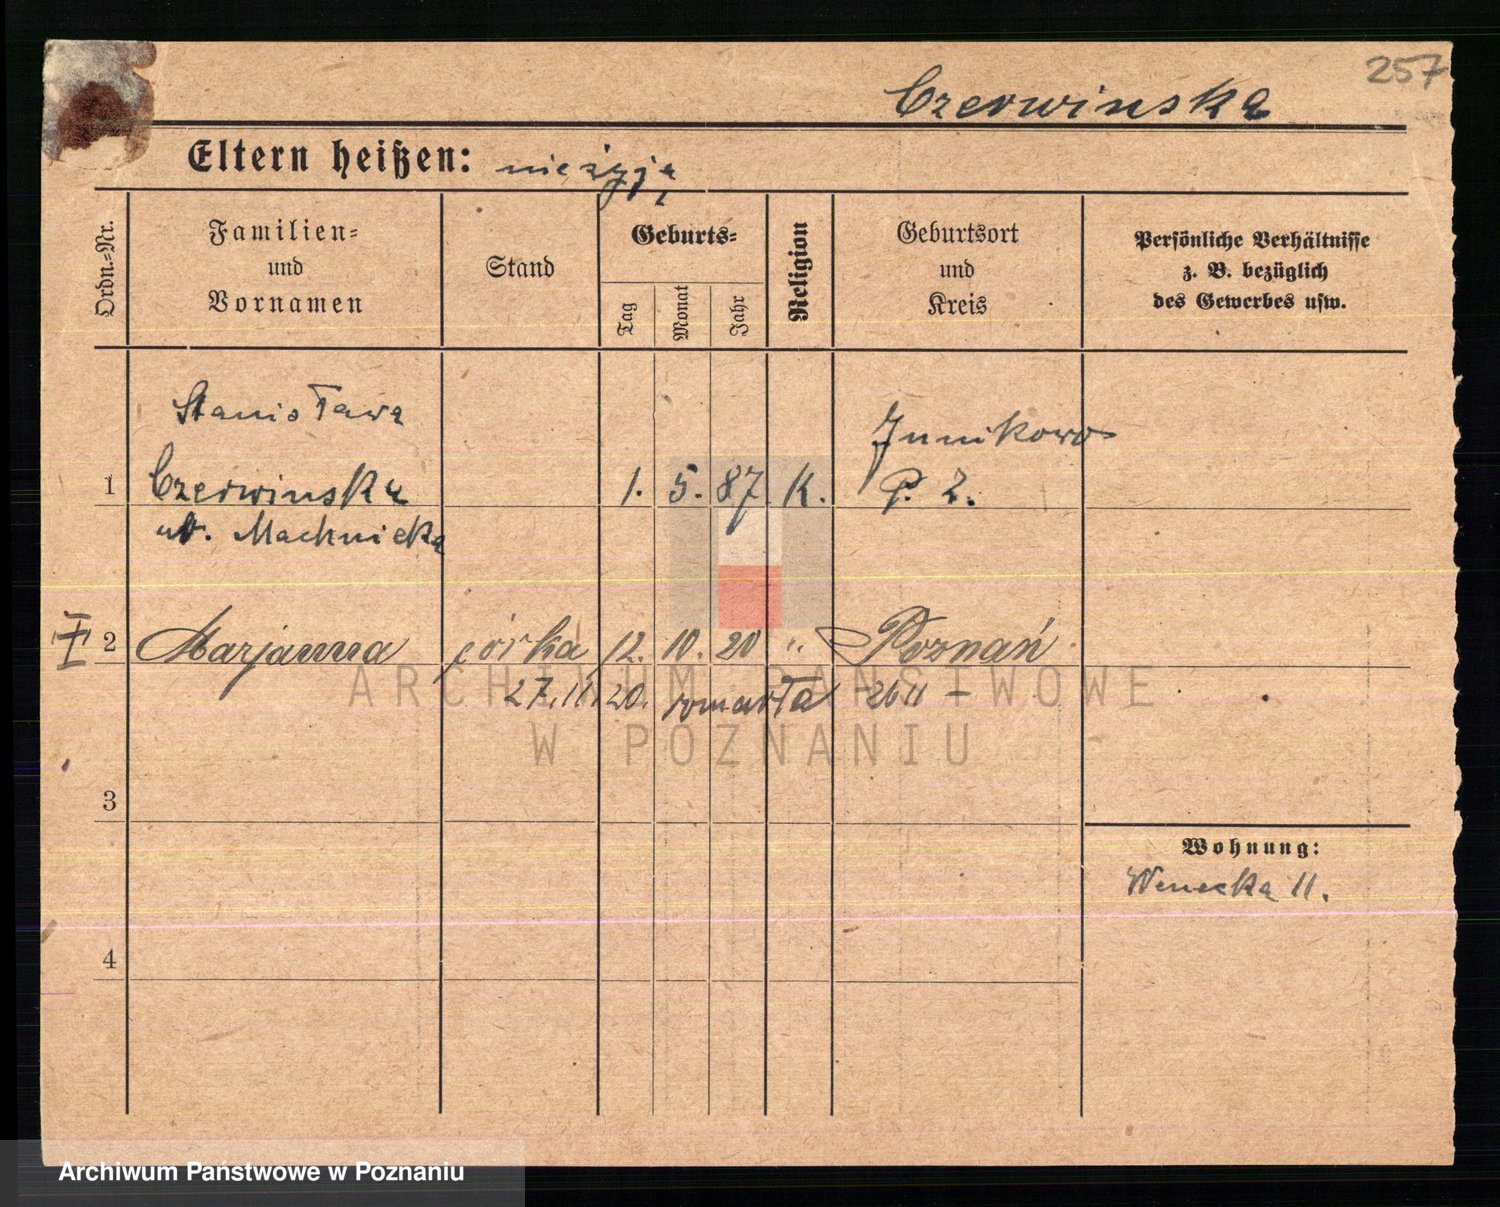 257
Czerwinska
Eltern heißen: nie żyją
Ordn.-Nr.
Familien=
und
Vornamen
Stand
Geburts=
Tag
Monat
Jahr
Religion
Geburtsort
und
Kreis
Persönliche Verhältnisse
z. B. bezüglich
des Gewerbes usw.
Stanisława
1 Czerwinska 1. 5. 87 K. Junikowo
P. Z.
Machnicka
2 Marjanna córka 12. 10. 20 " Poznań
27.11.20. zmarła 26 11 -
3
4
Wohnung:
Wenecka 11.
ARCHIWUM PAŃSTWOWE
W POZNANIU
Archiwum Państwowe w Poznaniu